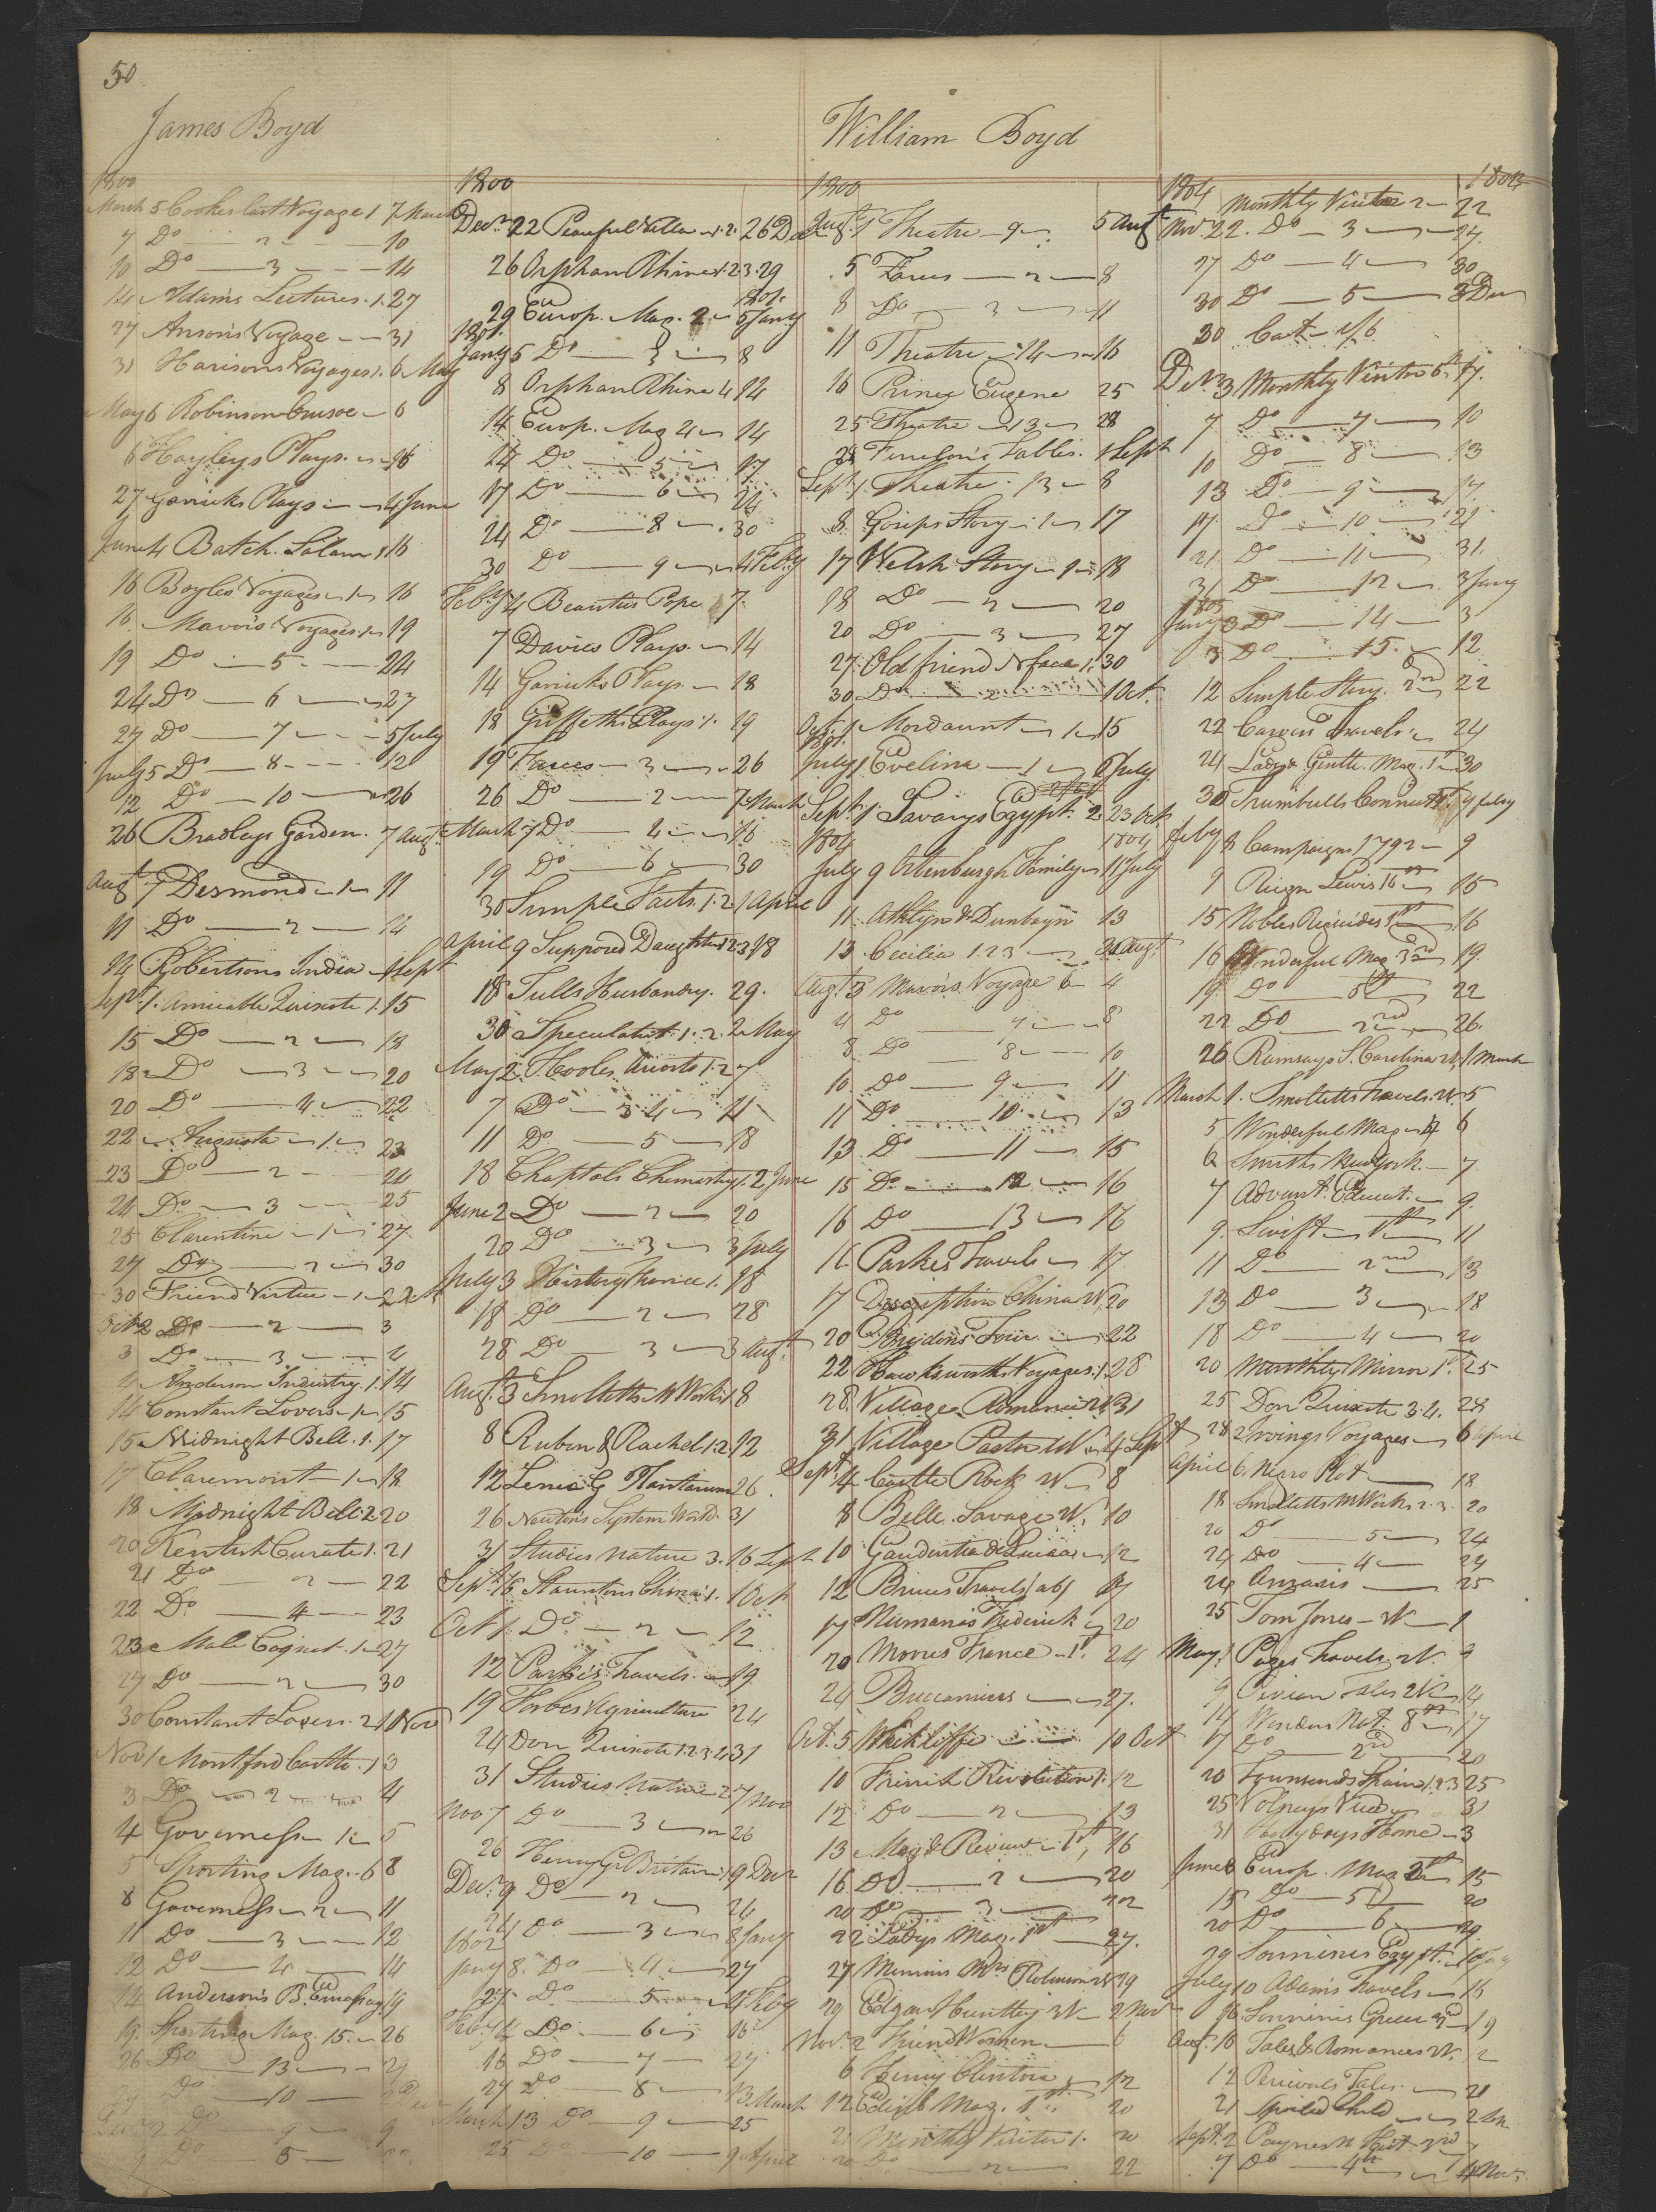 50
James Boyd
1800
March 5 Cookes last Voyage 1 7 March
7 Do 2 10
10 Do 3 14
14 Adams Lectures 1. 27
27 Ansons Voyage 31
31 Harisons Voyages 1. 6 May
May 6 Robinson Crusoe 6
6 Hayleys Plays 16
27 Garricks Plays 4 June
June 4 Batch. Salam. 1 16
16 Boyles Voyages 1 16
16 Mavors Voyages 1 19
19 Do 5 24
24 Do 6 27
27 Do 7 5 July
July 5 Do 8 12
12 Do 10 26
26 Bradleys Garden. 7 Augt.
Augt 7 Desmond 1 11
11 Do 2 14
14 Robertsons India 1 Sept
Sept. 1. Amicable Quixote 1. 15
15 Do 2 18
18 Do 3 20
20 Do 4 22
22 Augusta 1 23
23 Do 2 24
24 Do 3 25
25 Clarentine 1 27
27 Do 2 30
30 Friend Virtue 1 2 Oct
Oct 2 Do 2 3
3 Do 3 4
4 Anderson Industry. 1. 14
14 Constant Lovers 1 15
15 Midnight Bell. 1. 17
17 Claremont 1 18
18 Midnight Bell 2 20
20 Kentish Curate 1. 21
21 Do 2 22
22 Do 4 23
23 Male Coquet. 1 27
27 Do 2 30
30 Constant Lovers. 2 1 Nov
Nov 1 Montford Castle. 1 3
3 Do 2 4
4 Governess 1 5
5 Sporting Mag. 6 8
8 Governess 2 11
11 Do 3 12
12 Do 4 14
14 Anderson's B. Embassy 19
19. Sporting Mag. 15. 26
26 Do 13
Do 10
Do 9 9
Do 8
1800
Decr. 22 Peaceful Villa 1. 2. 26 De
26 Orphan Rhine 1. 2. 3. 29
29 Europ. Mag. 2 1801. 5 Jany
1801.
Jany 5 Do 3 8
8 Orphan Rhine 4 14
14 Europ. Mag 4 14
14 Do 5 17
17 Do 6 24
24 Do 8 30
30 Do 9 4 Feby
Feby 4 Beauties Pope 7.
7 Davies Plays 14
14 Garricks Plays 18
18 Griffeths Plays 1. 19
19 Farces 3 26
26 Do 2 7 March
March 7 Do 4 16
19 Do 6 30
30 Simple Facts 1. 2 1 April
April 9 Supposed Daughter 1 2 3 18
18 Tulls Husbandry. 29.
30 Speculator. 1. 2. 2 May
May 2 Hooles Ariosto 1. 2 7
7 Do 3 4 11
11 Do 5 18
18 Chaptals Chemistry 1. 2 June
June 2 Do 2 20
20 Do 3 3 July
July 3 History France 1. 18
18 Do 2 28
28 Do 3 3 Augt.
Augt. 3 Smolletts M Works 1 8
8 Ruben & Rachel 1. 2 12
12 26
26 Newtons System World. 31
31 Studies Nature 3. 16 Sept
Sept. 16 Stauntons China 1. 1 Oct
Oct 1. Do 2 12
12 Parkes Travels. 19.
19 Forbes Agriculture 24
24 Don Quixote 1. 2. 3 4 31
31 Studies Nature 2 7 Nov
Nov 7 Do 3 26
26 Henry G Britain 1 9 Decr
Decr. 9 Do 2 24
24 Do 3 8 Jany
1802
Jany 8. Do 4 27
27. Do 5 4 Feby
Feby 4 Do 6 16
16 Do 7 27
27 Do 8 13 March
March 13 Do 9 25
25 Do 10 9 April
William Boyd
1800
Augt. 1 Theatre 9 5 Augt
5 Farces 2 8
8 Do 3 11
11 Theatre 14 16
16 Prince Eugene 25
25 Theatre 13 28
28 Fenelon's Fables. 1 Sept
Sept. 1. Theatre. 12 8
8. Gossips Story 1 17
17 Welsh Story 1 18
18 Do 2 20
20 Do 3 27
27. Old friend N face 1. 30
30 Do 1 Oct.
Oct. 1 Mordaunt 1 15
1801.
July 1 Evelina 1 8 July
Sept. 1 Savarys Egypt. 2 23 Oct.
1804 1804
July 9 Ortenburgh Family 11 July
11. Athlyn & Dunbayn 13
13 Cecilia 1. 2 3 3 Augt.
Augt. 3 Mavors Voyage 6 4
4 Do 7 8
8. Do 8 10
10 Do 9 11
11 Do 10 13
13 Do 11 15
15 Do 12 16
16 Do 13 16
16. Parkes Travels 17.
17 Description China W, 20
20 Brydons Tour 22
22 Hawksworth Voyages. 1. 28
28. Village Romance W 31
31 Village Pastor W. 4 Sept
Sept. 4 Castle Rock W 8
8 Belle Savage W. 10
10 Gaudentia di Lucca 12
12 Bruces Travels (ab) 17
17 Numanas Frederick 20
20 Moores France 1st. 24
24 Buccaniers 27.
Oct. 5 Whitcliffe 10 Oct
10 French Revolution 1. 12
12 Do 2 13
13 Mag & Review 1st, 16
16 Do 2 20
20 Do 3 22
22 Ladys Mag. 1st 27.
27 Memoirs Mrs Robinson W 29
29 Edgar Huntley 3 W 2 Nov
Nov. 2 Friend Women 6
6 Henry Clinton 12
12 Edinb Mag. 1st. 20
21 Monthly Visitor 1. 20
20 Do 2 22
1804 1804
Monthly Visitor 2 22
Nov. 22. Do 3 24.
27 Do 4 30
30 Do 5 3 Decr
30 Cat 1/6
Decr. 3 Monthly Visitor 6th 7.
7 Do 7 10
10 Do 8 13
13 Do 9 17.
17. Do 10 21
21 Do 11 31.
31 Do 12 3 Jany
1805
Jany 3 Do 14 3
3 Do 15. 12
12 Simple Story. 2nd 22
22 Carvers Travels 24
24 Lady & Gentle. Mag. 1st 30
30 Trumbulls Connectt. 9 feby
feby 8 Campaign 1792 9
9 Reign Lewis 16th 15
15 Nobles Regicides 1st 16
16 Wonderful Mag 3rd 19.
19. Do 5th 22
22 Do 2nd 26.
26 Ramsays S. Carolina W, 1 March
March 1. Smolletts Travels. W. 5
5 Wonderful Mag 4 6
6 Smiths New York. 7.
7 Advant. Educat. 9.
9. Swift 1st 11
11 Do 2nd 13
13 Do 3 18
18 Do 4 20
20 Monthly Mirror 1st. 25
25 Don Quixote 3. 4. 28
28 2 Irvings Voyages 6 April
April 6. Negro Plot 18
18 Smolletts M Works 2. 3. 20
20 Do 5 24
24 Do 4 24
24 Anzasis 25
25 Tom Jones W 1
May. 1 Pages Travels W. 9
9 Persian Tales 2 W 14
14 Wonders Nat. 8th 17
17 Do 2nd 20
20 Townsends Spain 1. 2 3 25
25 Volneys View 31
31 Holydays Home 3
June Europ. Mag 15
15 Do 5 20
20 Do 6 29
29 Sonninis Egypt.
July 10 Adams Travels 16
16. Sonninis Greece 19
Aug. 10 Tales & Romances W. 12
12 Percivals Tales. 21
21 Spoiled Child 2 Sep
Sept. 2 Paynes Hist. 3rd 7
7 Do 4th 4 Nov.